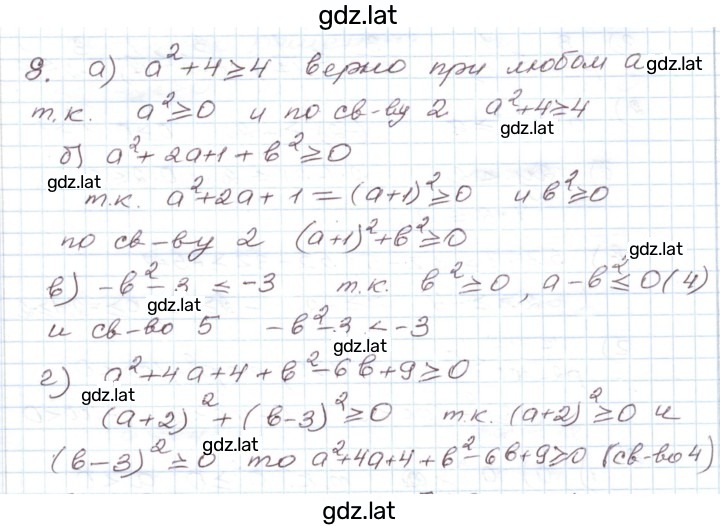 gdz.lat
9. а) a²+4≥4 верно при любом a gdz.lat
т.к. a²≥0 и по св-ву 2 a²+4≥4
gdz.lat
б) a²+2a+1+b²≥0
gdz.lat
т.к. a²+2a+1=(a+1)²≥0 и b²≥0
по св-ву 2 (a+1)²+b²≥0
gdz.lat
в) -b²-3 ≤ -3 т.к. b²≥0, а -b²≤0(4)
gdz.lat
и св-во 5 -b²-3 < -3
gdz.lat
г) a²+4a+4+b²-6b+9≥0
gdz.lat
(a+2)²+(b-3)²≥0 т.к. (a+2)²≥0 и
gdz.lat
(b-3)²≥0 то a²+4a+4+b²-6b+9≥0 (св-во 4)
gdz.lat